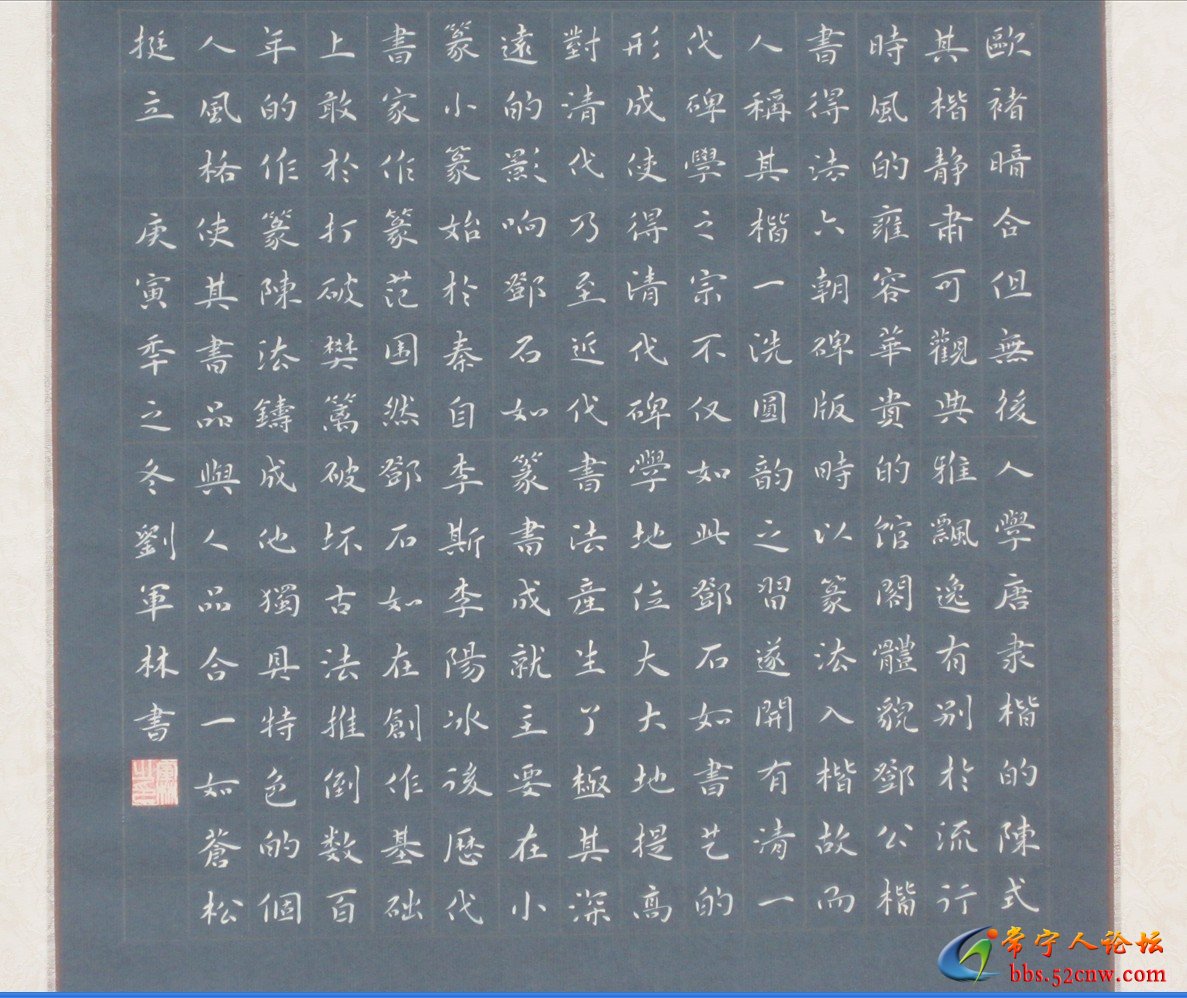 歐褚暗合但無後人學唐隶楷的陳式
其楷静肅可觀典雅飄逸有别於流行
時風的雍容華貴的馆閣體貌鄧公楷
書得法六朝碑版時以篆法入楷故而
人稱其楷一洗圓韵之習遂開有清一
代碑學之宗不仅如此鄧石如書艺的
形成使得清代碑學地位大大地提高
對清代乃至近代書法產生了極其深
遠的影响鄧石如篆書成就主要在小
篆小篆始於秦自李斯李陽冰後歷代
書家作篆范围然鄧石如在創作基础
上敢於打破樊篱破坏古法推倒数百
年的作篆陳法鑄成他獨具特色的個
人風格使其書品與人品合一如蒼松
挺立 庚寅季之冬劉軍林書
常宁人论坛
bbs.52cnw.com